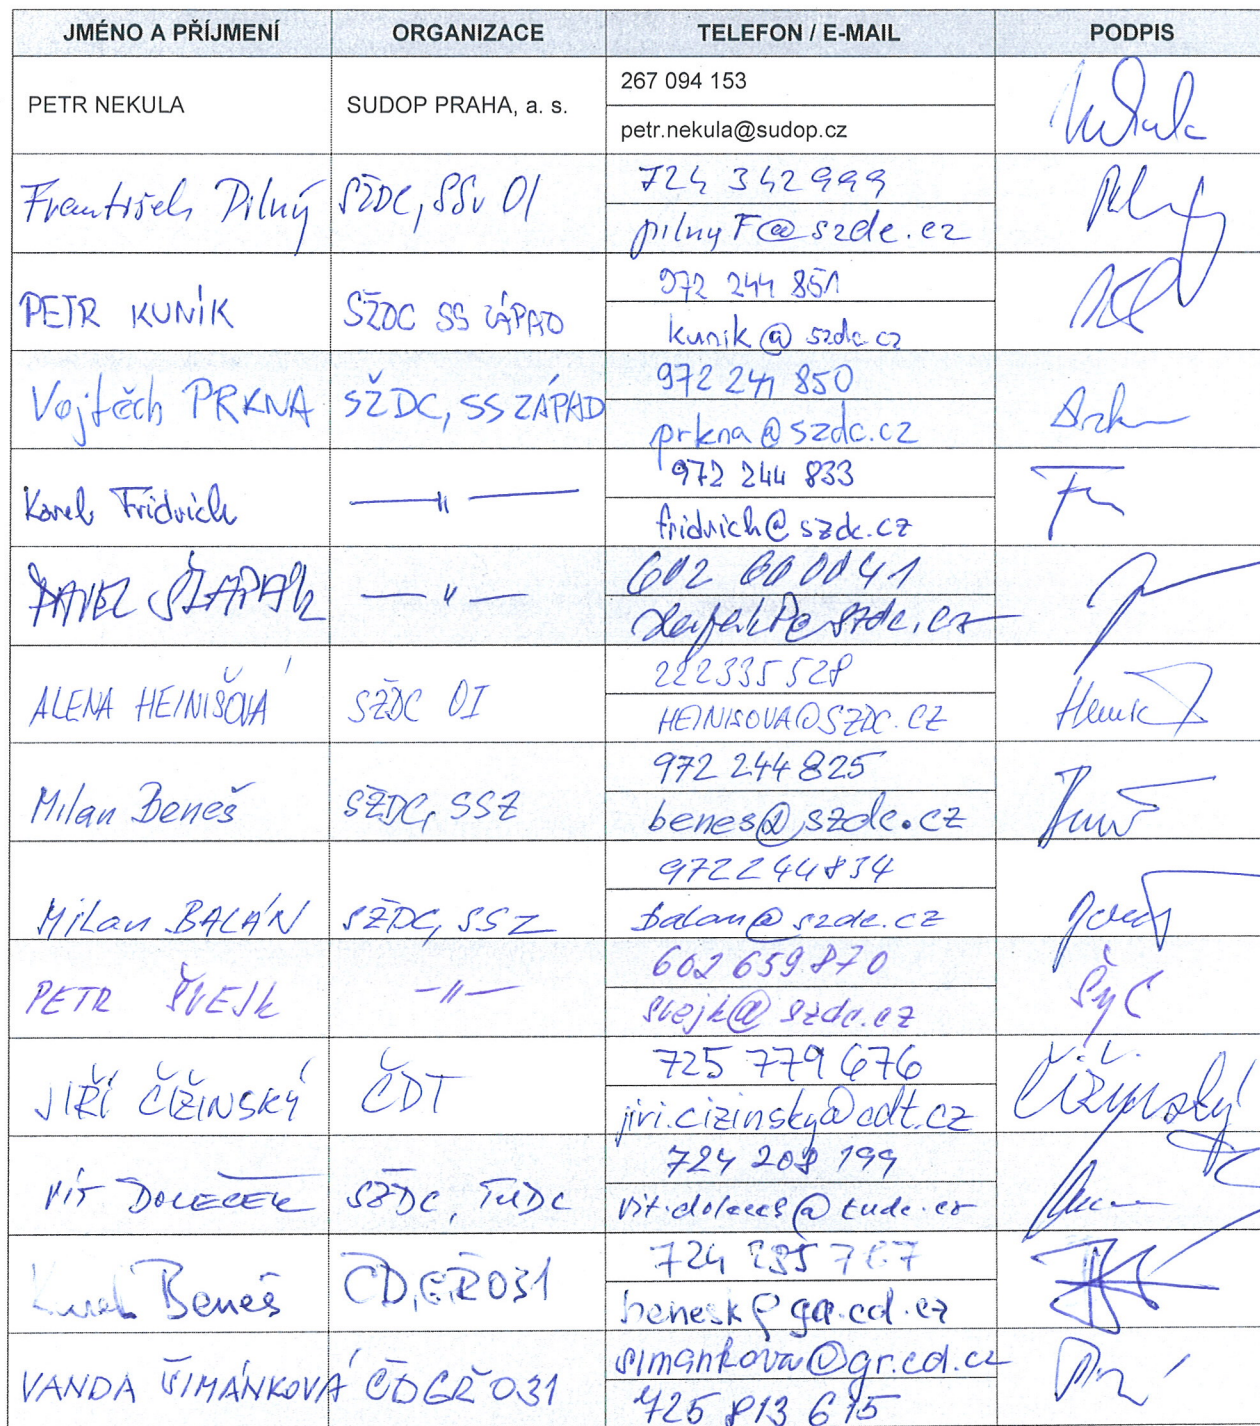 JMÉNO A PŘÍJMENÍ ORGANIZACE TELEFON / E-MAIL PODPIS
PETR NEKULA SUDOP PRAHA, a. s. 267 094 153
petr.nekula@sudop.cz
František Pilný SŽDC, SSv OI 724 342 999
pilnyF@szdc.cz
PETR KUNÍK SŽDC SS ZÁPAD 972 244 851
kunik@szdc.cz
Vojtěch PRKNA SŽDC, SS ZÁPAD 972 241 850
prkna@szdc.cz
Karel Fridrich —"— 972 244 833
fridrich@szdc.cz
PAVEL —"— 602
ALENA HEINIŠOVÁ SŽDC OI 222335528
HEINISOVA@SZDC.CZ
Milan Beneš SŽDC, SSZ 972 244 825
benes@szdc.cz
Milan BALÁN SŽDC, SSZ 972244834
balan@szdc.cz
PETR ŠVEJK —"— 602 659 870
svejk@szdc.cz
JIŘÍ ČIŽINSKÝ ČDT 725 779 676 Čižinský
jiri.cizinsky@cdt.cz
VÍT DOLEČEK SŽDC, TÚDC 724 208 199
Karel Beneš ČD, GŘ 031 724
benesk@gr.cd.cz
VANDA ŠIMÁNKOVÁ ČD GŘ 031 simankova@gr.cd.cz
725 813 615